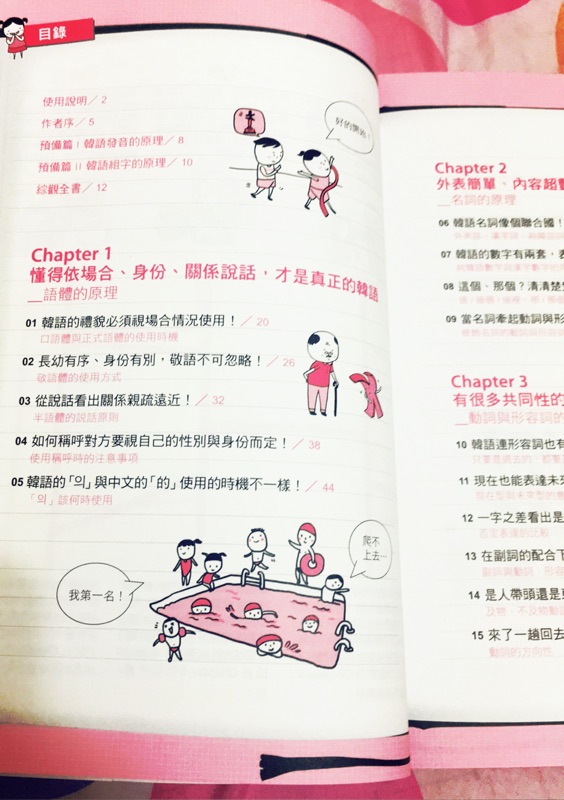 目錄
使用說明／2
作者序／5
預備篇 I 韓語發音的原理／8
預備篇 II 韓語組字的原理／10
綜觀全書／12
好的開始！
Chapter 1
懂得依場合、身份、關係說話，才是真正的韓語
__語體的原理
01 韓語的禮貌必須視場合情況使用！／20
口語體與正式語體的使用時機
02 長幼有序、身份有別，敬語不可忽略！／26
敬語體的使用方式
03 從說話看出關係親疏遠近！／32
半語體的說話原則
04 如何稱呼對方要視自己的性別與身份而定！／38
使用稱呼時的注意事項
05 韓語的「의」與中文的「的」使用的時機不一樣！／44
「의」該何時使用
爬不
上去…
我第一名！
Chapter 2
外表簡單、內容超
__名詞的原理
06 韓語名詞像個聯合國！
07 韓語的數字有兩套，表
08 這個、那個？清清楚
09 當名詞牽起動詞與形
Chapter 3
有很多共同性的
__動詞與形容詞的
10 韓語連形容詞也有
11 現在也能表達未來
12 一字之差看出是
否定表達的比較
13 在副詞的配合下
副詞與動詞、形容
14 是人帶頭還是
及物、不及物動
15 來了一趟回去
動詞的方向性